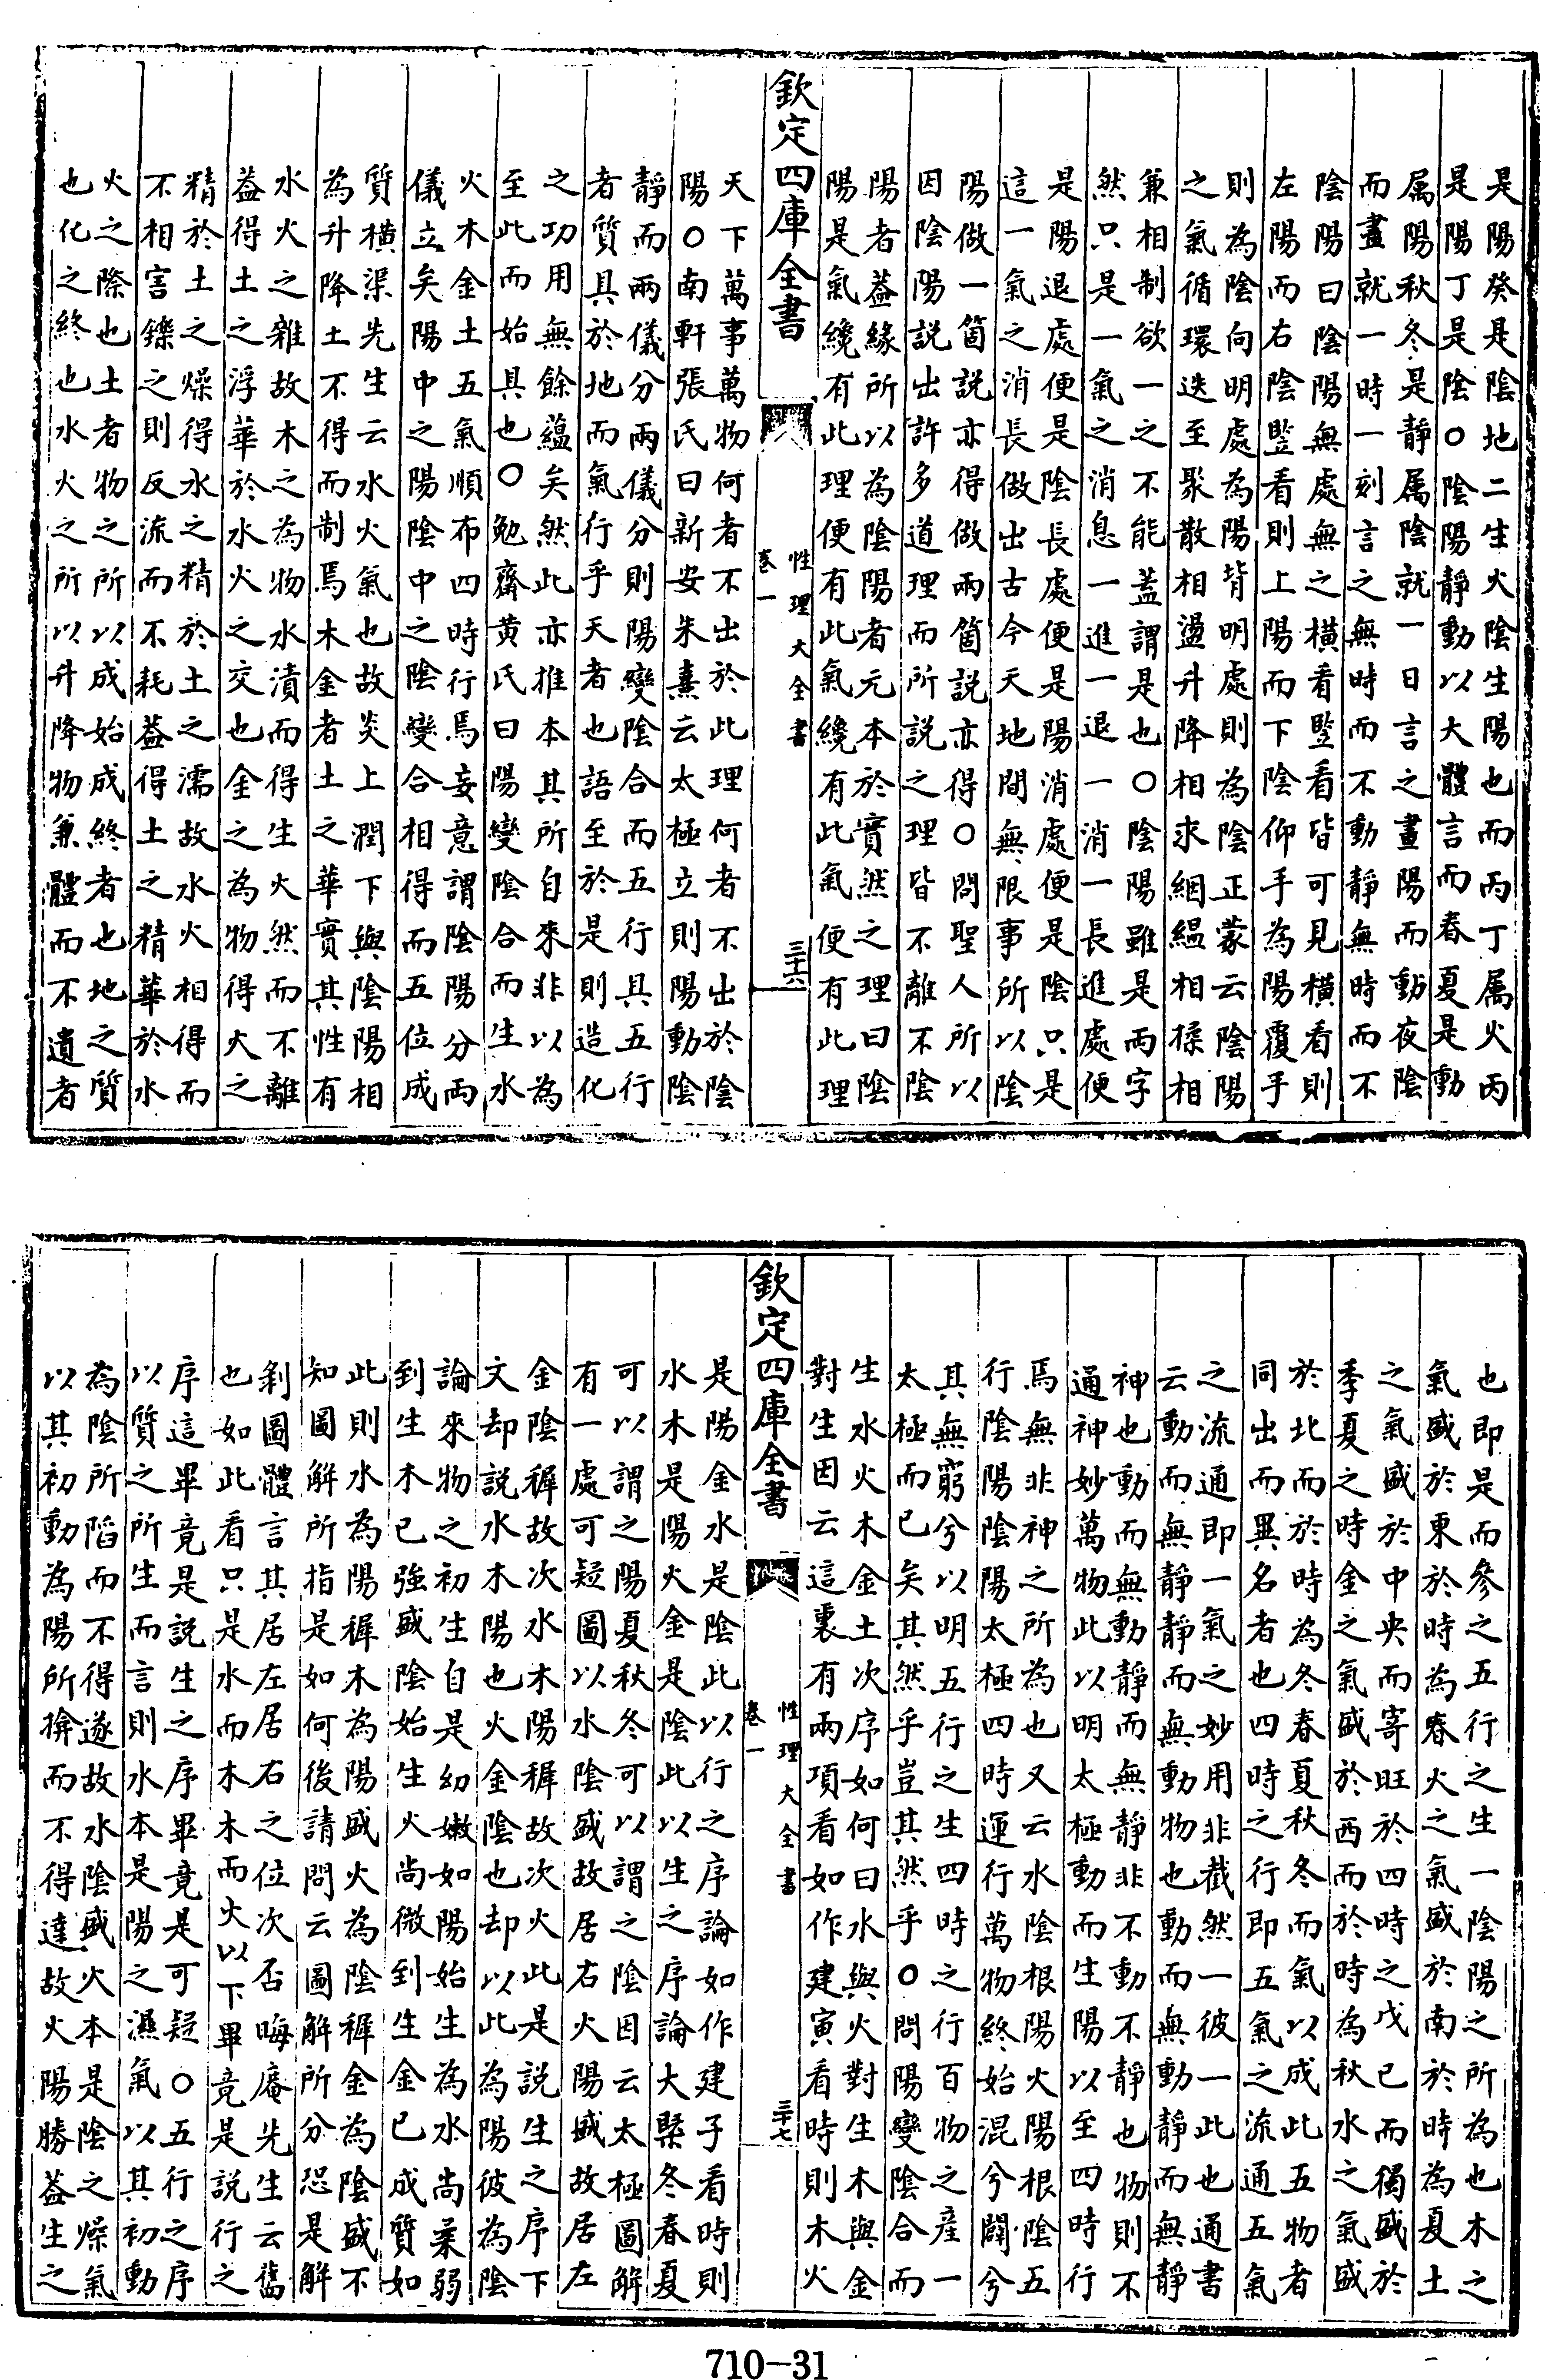 是陽癸是陰地二生火陰生陽也而丙丁属火丙
是陽丁是陰○陰陽靜動以大體言而春夏是動
属陽秋冬是靜属陰就一日言之晝陽而動夜陰
而盡就一時一刻言之無時而不動靜無時而不
陰陽曰陰陽無處無之橫看豎看皆可見橫看則
左陽而右陰豎看則上陽而下陰仰手為陽覆手
則為陰向明處為陽背明處則為陰正蒙云陰陽
之氣循環迭至聚散相盪升降相求絪緼相揉相
兼相制欲一之不能蓋謂是也○陰陽雖是兩字
然只是一氣之消息一進一退一消一長進處便
是陽退處便是陰長處便是陽消處便是陰只是
這一氣之消長做出古今天地間無限事所以陰
陽做一箇説亦得做兩箇説亦得○問聖人所以
因陰陽説出許多道理而所説之理皆不離不陰
陽者蓋緣所以為陰陽者元本於實然之理曰陰
陽是氣纔有此理便有此氣纔有此氣便有此理
欽定四庫全書
性理大全書
卷一
三十六
天下萬事萬物何者不出於此理何者不出於陰
陽○南軒張氏曰新安朱熹云太極立則陽動陰
靜而兩儀分兩儀分則陽變陰合而五行具五行
者質具於地而氣行乎天者也語至於是則造化
之功用無餘蘊矣然此亦推本其所自來非以為
至此而始具也○勉齋黄氏曰陽變陰合而生水
火木金土五氣順布四時行焉妄意謂陰陽分兩
儀立矣陽中之陽陰中之陰變合相得而五位成
質橫渠先生云水火氣也故炎上潤下與陰陽相
為升降土不得而制焉木金者土之華實其性有
水火之雜故木之為物水漬而得生火然而不離
蓋得土之浮華於水火之交也金之為物得火之
精於土之燥得水之精於土之濡故水火相得而
不相害鑠之則反流而不耗蓋得土之精華於水
火之際也土者物之所以成始成終者也地之質
也化之終也水火之所以升降物兼體而不遺者
也即是而參之五行之生一陰陽之所為也木之
氣盛於東於時為春火之氣盛於南於時為夏土
之氣盛於中央而寄旺於四時之戊已而獨盛於
季夏之時金之氣盛於西而於時為秋水之氣盛
於北而於時為冬春夏秋冬而氣以成此五物者
同出而異名者也四時之行即五氣之流通五氣
之流通即一氣之妙用非截然一彼一此也通書
云動而無靜靜而無動物也動而無動靜而無靜
神也動而無動靜而無靜非不動不靜也物則不
通神妙萬物此以明太極動而生陽以至四時行
焉無非神之所為也又云水陰根陽火陽根陰五
行陰陽陰陽太極四時運行萬物終始混兮闢兮
其無窮兮以明五行之生四時之行百物之産一
太極而已矣其然乎豈其然乎○問陽變陰合而
生水火木金土次序如何曰水與火對生木與金
對生因云這裏有兩項看如作建寅看時則木火
欽定四庫全書
性理大全書
卷一
三十七
是陽金水是陰此以行之序論如作建子看時則
水木是陽火金是陰此以生之序論大槩冬春夏
可以謂之陽夏秋冬可以謂之陰因云太極圖解
有一處可疑圖以水陰盛故居右火陽盛故居左
金陰穉故次水木陽穉故次火此是説生之序下
文却説水木陽也火金陰也却以此為陽彼為陰
論來物之初生自是幼嫩如陽始生為水尚柔弱
到生木已強盛陰始生火尚微到生金已成質如
此則水為陽穉木為陽盛火為陰穉金為陰盛不
知圖解所指是如何後請問云圖解所分恐是解
剝圖體言其居左居右之位次否晦庵先生云舊
也如此看只是水而木木而火以下畢竟是説行之
序這畢竟是説生之序畢竟是可疑○五行之序
以質之所生而言則水本是陽之濕氣以其初動
為陰所䧟而不得遂故水陰盛火本是陰之燥氣
以其初動為陽所揜而不得達故火陽勝蓋生之
710—31